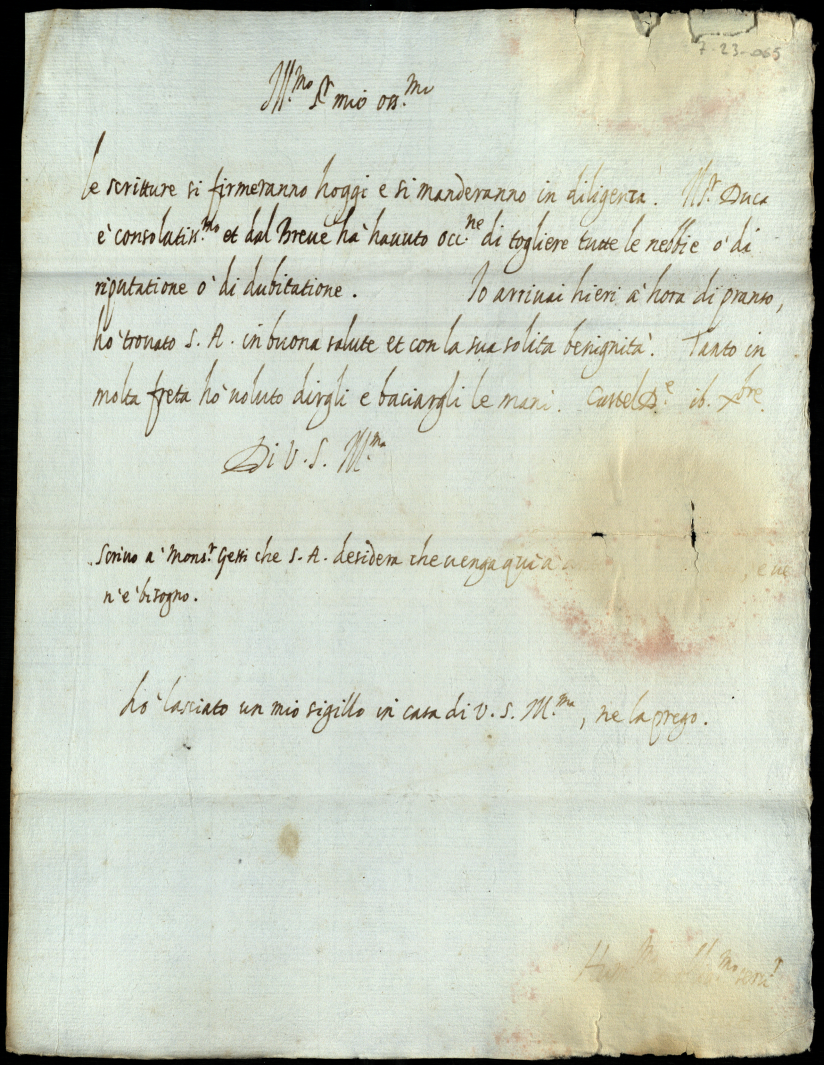 7-23-065
Ill.mo Sr mio oss.mo
le scritture si firmeranno hoggi e si manderanno in diligenza. Il Sr. Duca
è consolatiss.mo et dal Breve hà havuto occ.ne di togliere tutte le nebbie ò di
riputatione ò di dubitatione. Io arrivai hieri à hora di pranso,
hò trovato S. A. in buona salute et con la sua solita benignità. Tanto in
molta freta hò voluto dirgli e baciargli le mani. Castel D.e 16. Xbre.
Di V. S. Ill.ma
Scrivo à Mons.r Gessi che S. A. desidera che venga quà
n'è bisogno.
hò lasciato un mio sigillo in casa di V. S. Ill.ma, ne la prego.